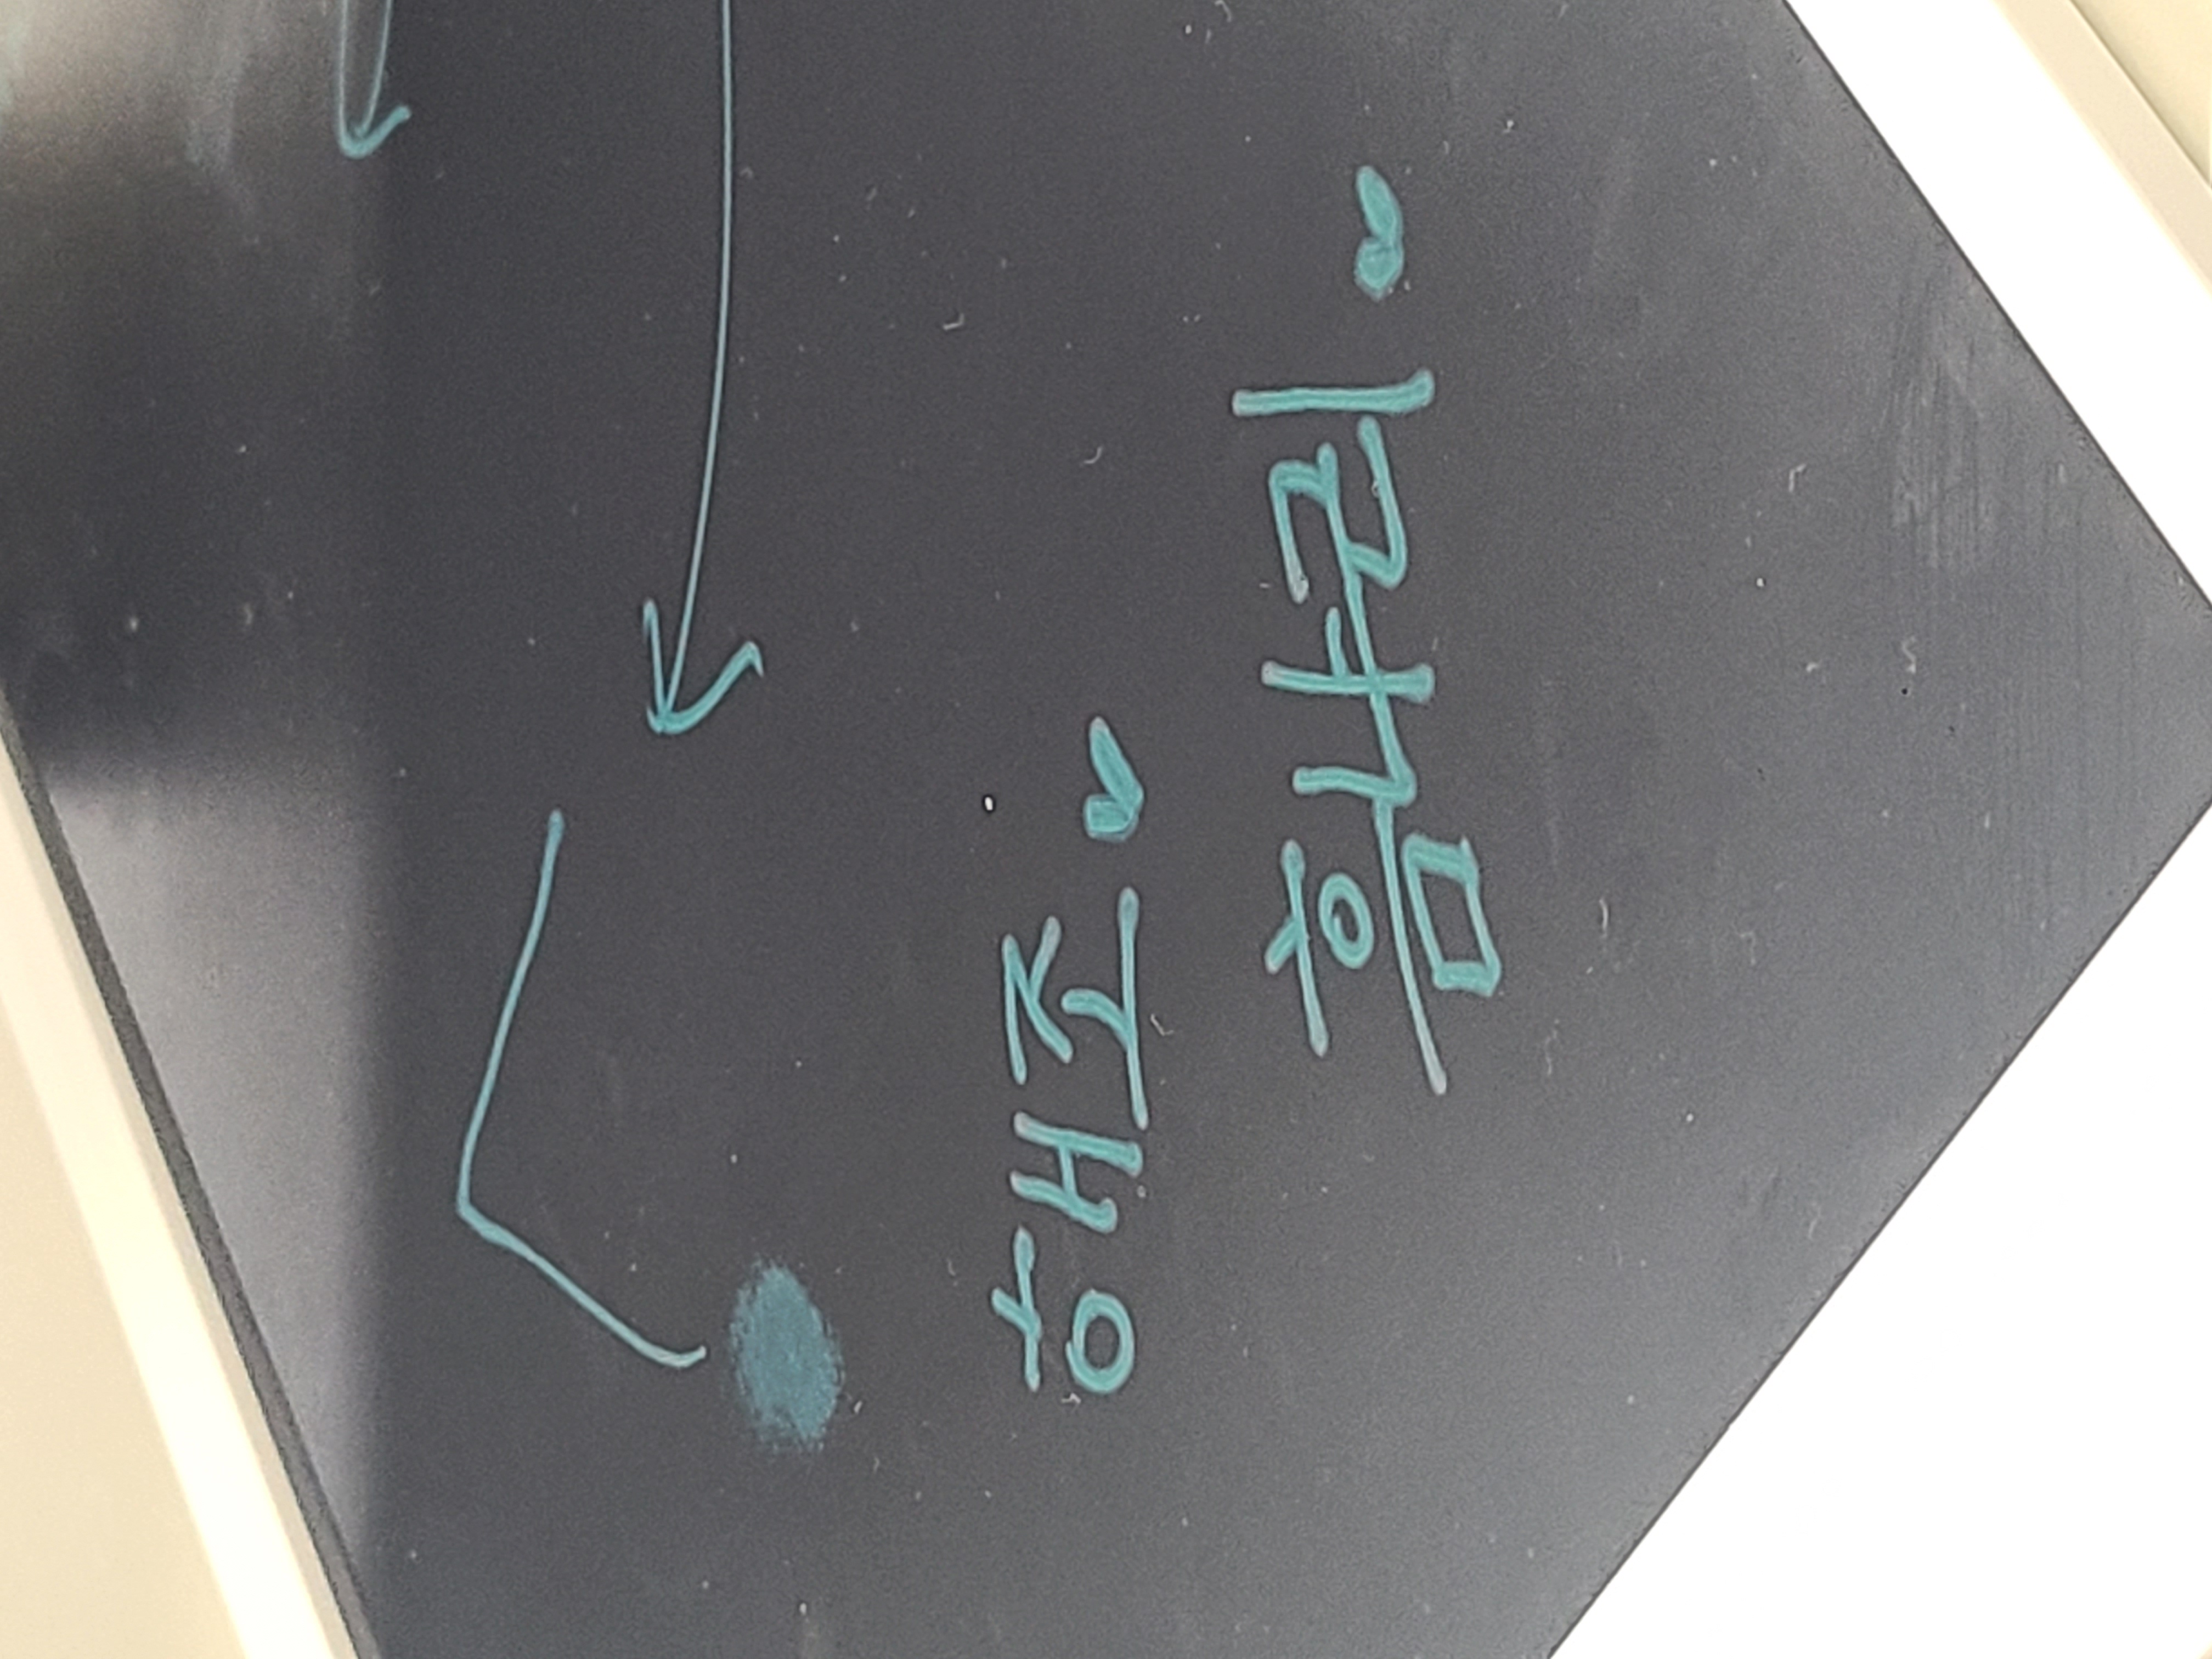 해조♥
흠냐리♥